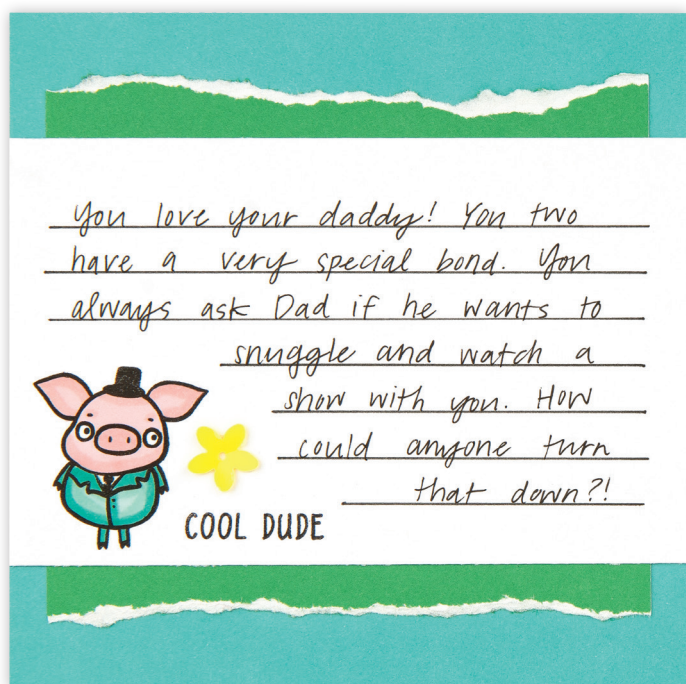 You love your daddy! You two
have a very special bond. You
always ask Dad if he wants to
snuggle and watch a
show with you. How
could anyone turn
that down?!
COOL DUDE